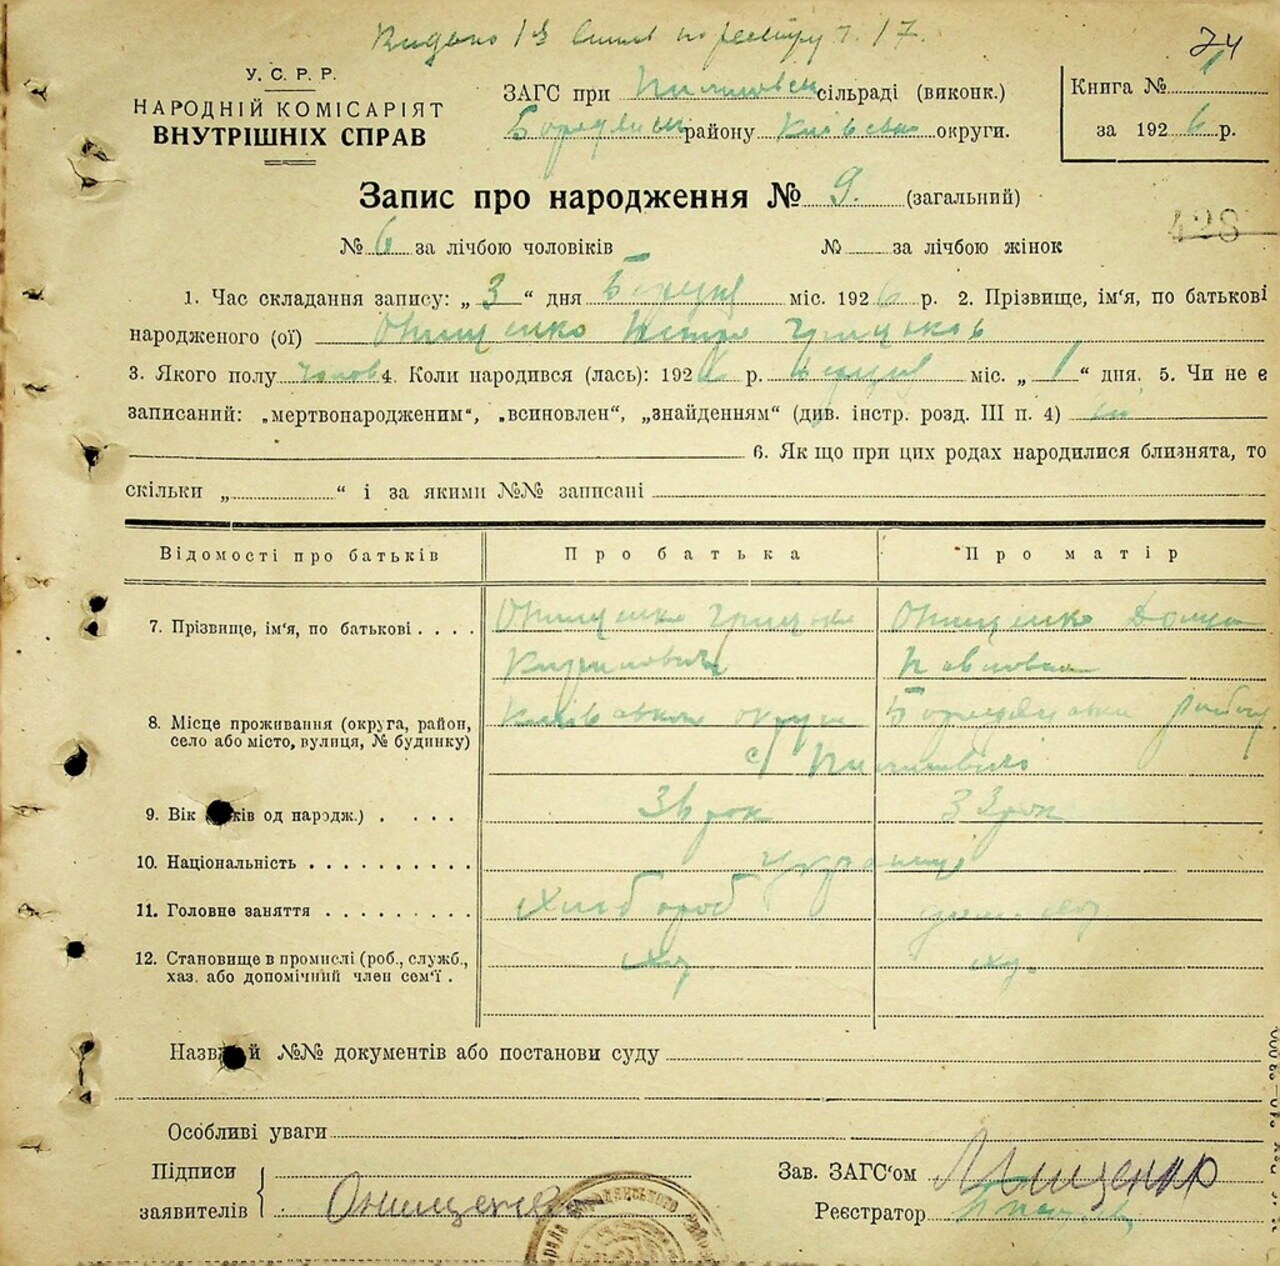 Видано
по реєстру
17.
74
У. С. Р. Р.
НАРОДНІЙ КОМІСАРІЯТ
ВНУТРІШНІХ СПРАВ
ЗАГС при сільраді (виконк.)
району Київськ округи.
Книга № 1
за 1926 р.
Запис про народження № 9. (загальний)
428
№ 6 за лічбою чоловіків № за лічбою жінок
1. Час складання запису: „ 3 “ дня міс. 1926 р. 2. Прізвище, ім'я, по батькові
народженого (ої) Онищенко Петро Грицьків
3. Якого полу чолов 4. Коли народився (лась): 192 р. міс. „ 1 “ дня. 5. Чи не є
записаний: „мертвонародженим“, „всиновлен“, „знайденням“ (див. інстр. розд. III п. 4) ні
6. Як що при цих родах народилися близнята, то
скільки „ “ і за якими №№ записані
Відомості про батьків Про батька Про матір
7. Прізвище, ім'я, по батькові . . . . Онищенко Грицько Онищенко Домка
Кирилович Павловна
8. Місце проживання (округа, район, Київської округи
село або місто, вулиця, № будинку)
с/
9. Вік років од народж.) . . . . . 36 рок 33 рок
10. Національність . . . . . . . . . . Українці
11. Головне заняття . . . . . . . . . Хлібороб
12. Становище в промислі (роб., служб., хаз. або допомічний член сем'ї . хаз. хаз.
Назва й №№ документів або постанови суду
Особливі уваги
Підписи
заявителів Онищенко
Зав. ЗАГС'ом
Реєстратор